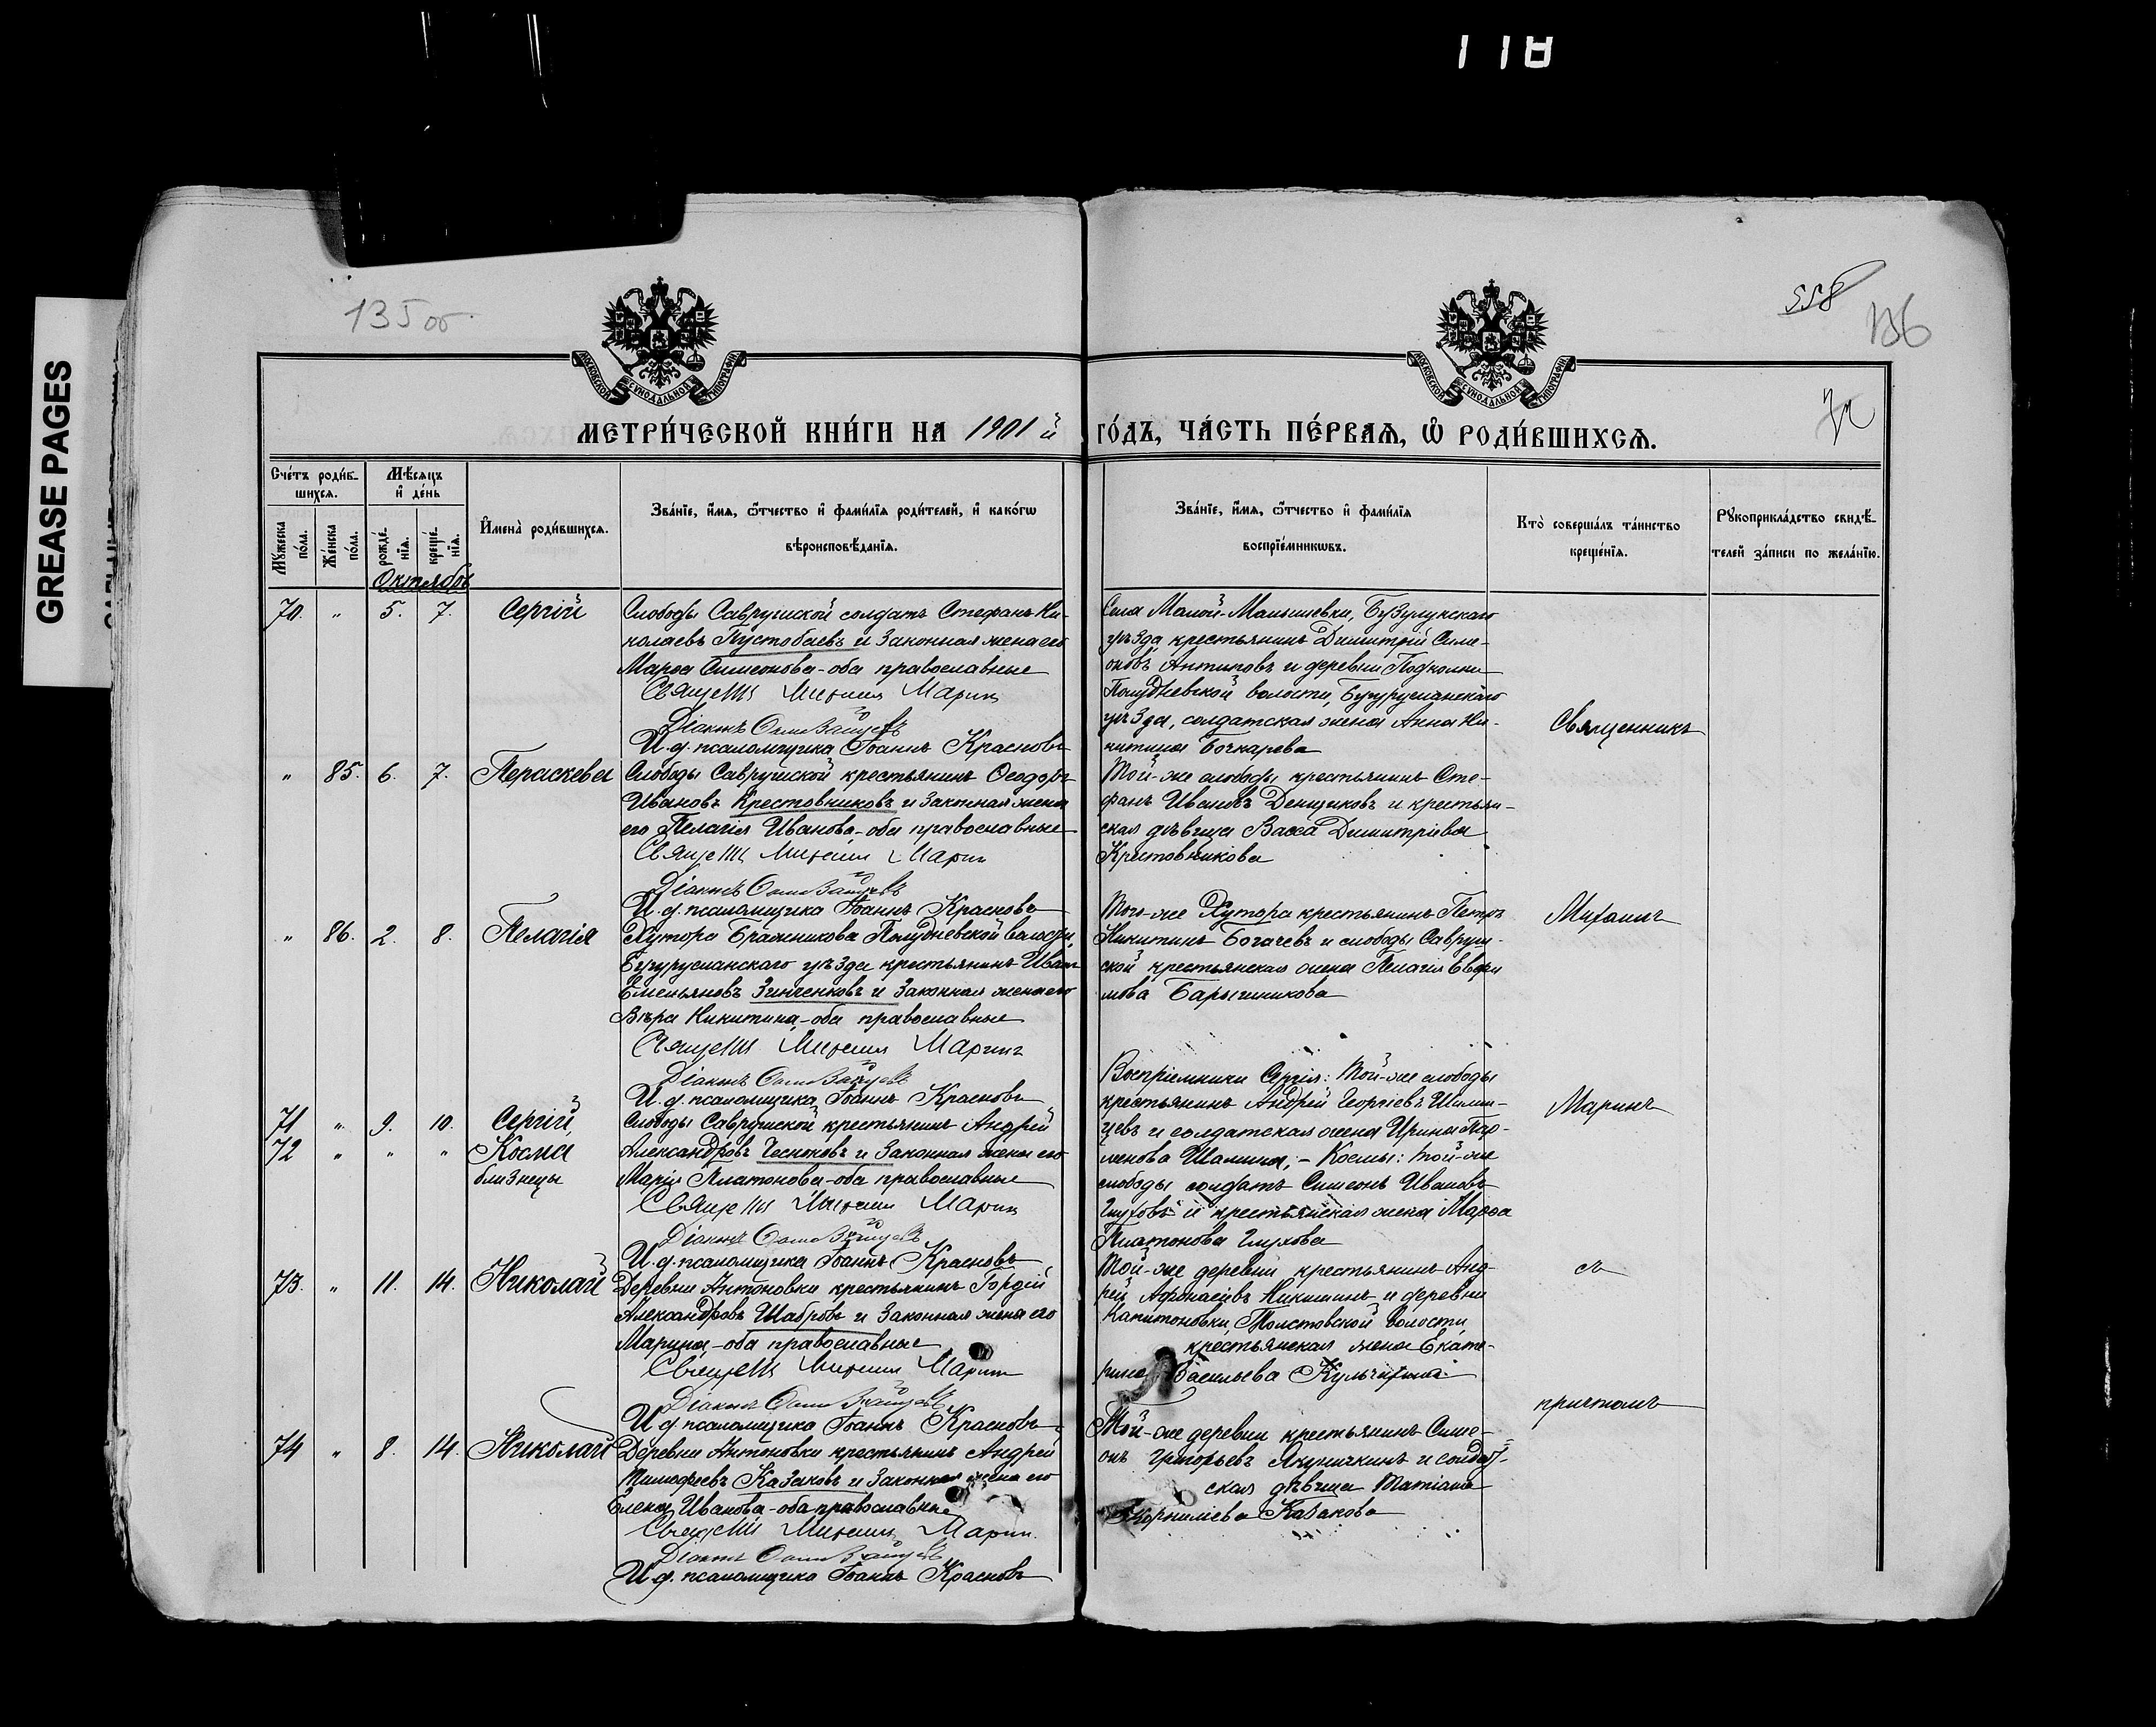 118
GREASE PAGES
135 об
558
136
МОСКОВСКОЙ СѴНОДАЛЬНОЙ ТИПОГРАФІИ
МОСКОВСКОЙ СѴНОДАЛЬНОЙ ТИПОГРАФІИ
МЕТРИ́ЧЕСКОЙ КНИ́ГИ НА 1901й ГО́ДЪ, ЧА́СТЬ ПЕ́РВАЯ, Ѽ РОДИ́ВШИХСѦ.
Сче́тъ роди́в-
шихсѧ.
Мужеска по́ла.
Же́нска по́ла.
Мѣ́сяцъ
и҆ де́нь
рожде́-
нїѧ.
креще́-
нїѧ.
И҆мена̀ роди́вшихсѧ.
Зва́нїе, и҆́мѧ, ѻ҆́тчество и҆ фами́лїѧ роди́телей, и҆ како́гѡ
вѣроисповѣ́данїѧ.
Зва́нїе, и҆́мѧ, ѻ҆́тчество и҆ фами́лїѧ
воспрїе́мникѡвъ.
Кто̀ соверша́лъ та́инство
креще́нїѧ.
Рꙋкоприкла́дство свидѣ́-
телей за́писи по жела́нїю.
Октябрь
70. " 5. 7. Сергій
Слободы Саврушской солдатъ Стефанъ Ни-
колаевъ Пустобаевъ и законная жена его
Марѳа Симеонова - оба православные
Священн Михаил Марин
Діаконъ
И. д. псаломщика Іоаннъ Красновъ
Села Малой-Малышевки, Бузулукскаго
уѣзда, крестьянинъ Димитрій Симе-
оновъ Антиповъ и деревни Подколки
Полудневской волости, Бугурусланскаго
уѣзда, солдатская жена Анна Ни-
китина Бочкарева
" 85. 6. 7. Параскева
Слободы Саврушской крестьянинъ Ѳеодоръ
Ивановъ Крестовниковъ и законная жена
его Пелагія Иванова - оба православные
Священн Михаил Марин
Діаконъ
И. д. псаломщика Іоаннъ Красновъ
Той-же слободы крестьянинъ Сте-
фанъ Ивановъ Денщиковъ и крестьян-
ская дѣвица Васса Димитріева
Крестовникова
" 86. 2. 8. Пелагія
Хутора Бражникова Полудневской волости,
Бугурусланскаго уѣзда крестьянинъ Иванъ
Емельяновъ Зинченковъ и законная жена его
Вѣра Никитина - оба православные
Священн Михаил Маринъ
Діаконъ
И. д. псаломщика Іоаннъ Красновъ
Того-же Хутора крестьянинъ Петръ
Никитинъ Богачевъ и слободы Савруш-
ской крестьянская жена Пелагія Евфи-
мова Барышникова
71 " 9. 10. Сергій,
72 " " " Косма
близнецы
Слободы Саврушской крестьянинъ Андрей
Александровъ Чесноковъ и законная жена его
Марія Платонова - оба православные
Священн Михаил Марин
Діаконъ
И. д. псаломщика Іоаннъ Красновъ
Воспріемники Сергія: Той-же слободы
крестьянинъ Андрей Георгіевъ
и солдатская жена Ирина Пар-
менова - Космы: Той-же
слободы солдатъ Симеонъ Ивановъ
Глуховъ и крестьянская жена Марѳа
Платонова Глухова
73. " 11. 14. Николай
Деревни Антоновки крестьянинъ Гордій
Александровъ Шабровъ и законная жена его
Марина - оба православные
Священн Михаил Марин
Діаконъ
И. д. псаломщика Іоаннъ Красновъ
Той-же деревни крестьянинъ Анд-
рей Афонасіевъ Никишинъ и деревни
Капитоновки Толстовской волости
крестьянская жена Екате-
рина Васильева
74 " 8. 14. Николай
Деревни Антоновки крестьянинъ Андрей
Тимофеевъ Казаковъ и законная жена его
Елена Иванова - оба православные
Священн Михаил Марин
Діаконъ
И. д. псаломщика Іоаннъ Красновъ
Той-же деревни крестьянинъ Симе-
онъ Григорьевъ Якуничкинъ и солдат-
ская дѣвица Татіана
Корниліева Казакова
Священникъ
Михаилъ
Маринъ
съ
причтомъ